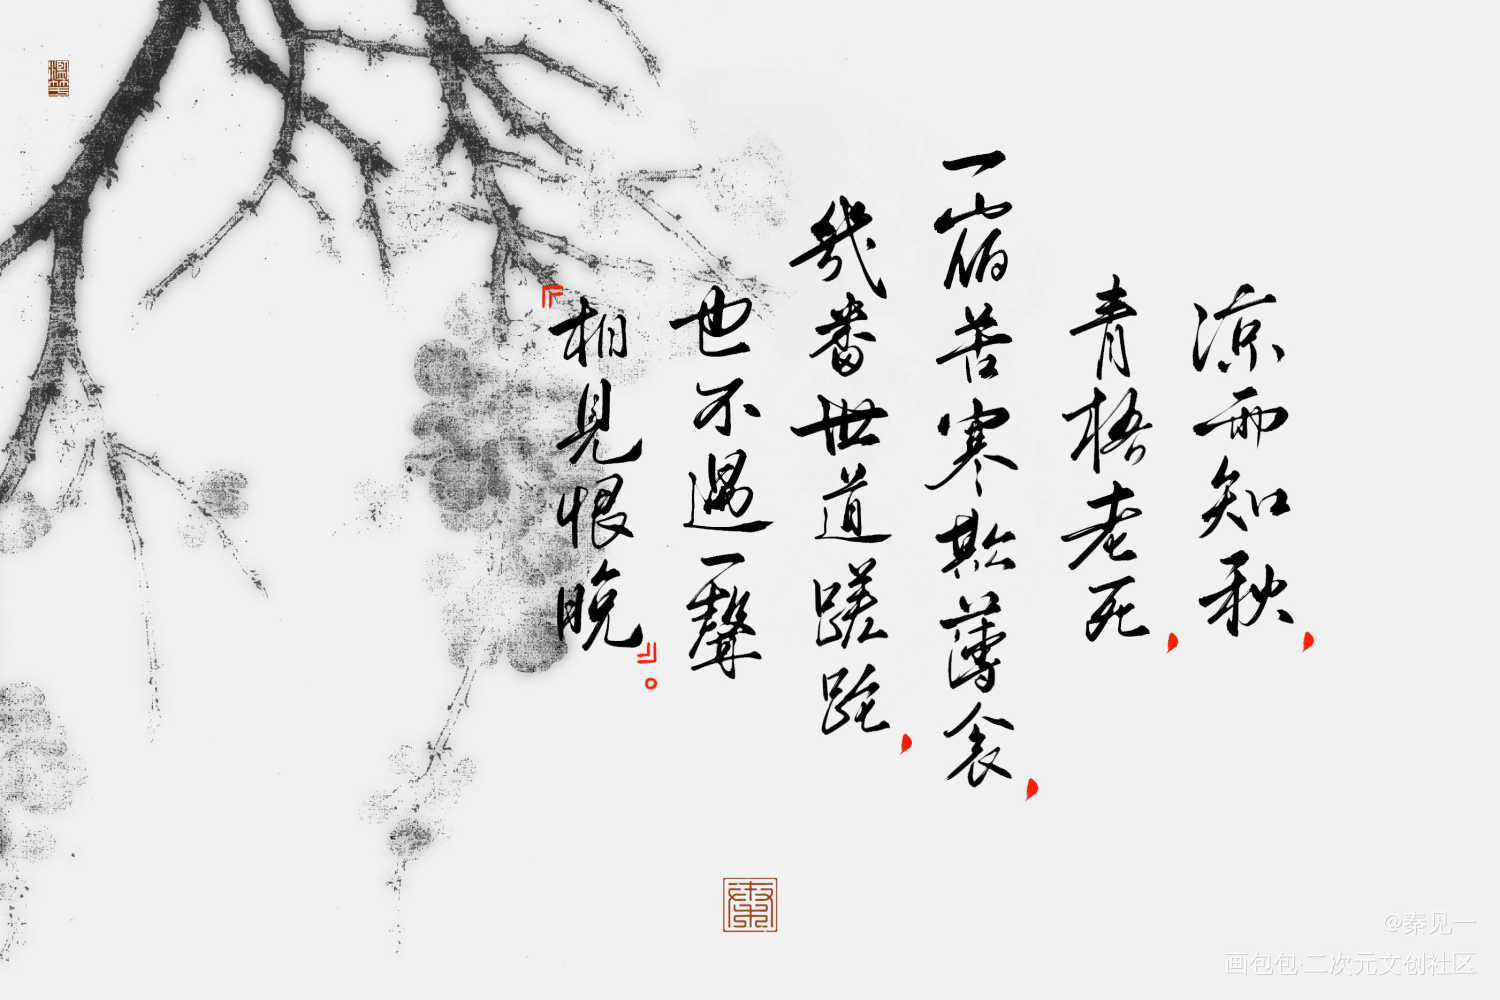 涼雨知秋，
青梧老死，
一宿苦寒欺薄衾，
幾番世道蹉跎，
也不過一聲
『相見恨晚』。
@秦见一
画包包·二次元文创社区